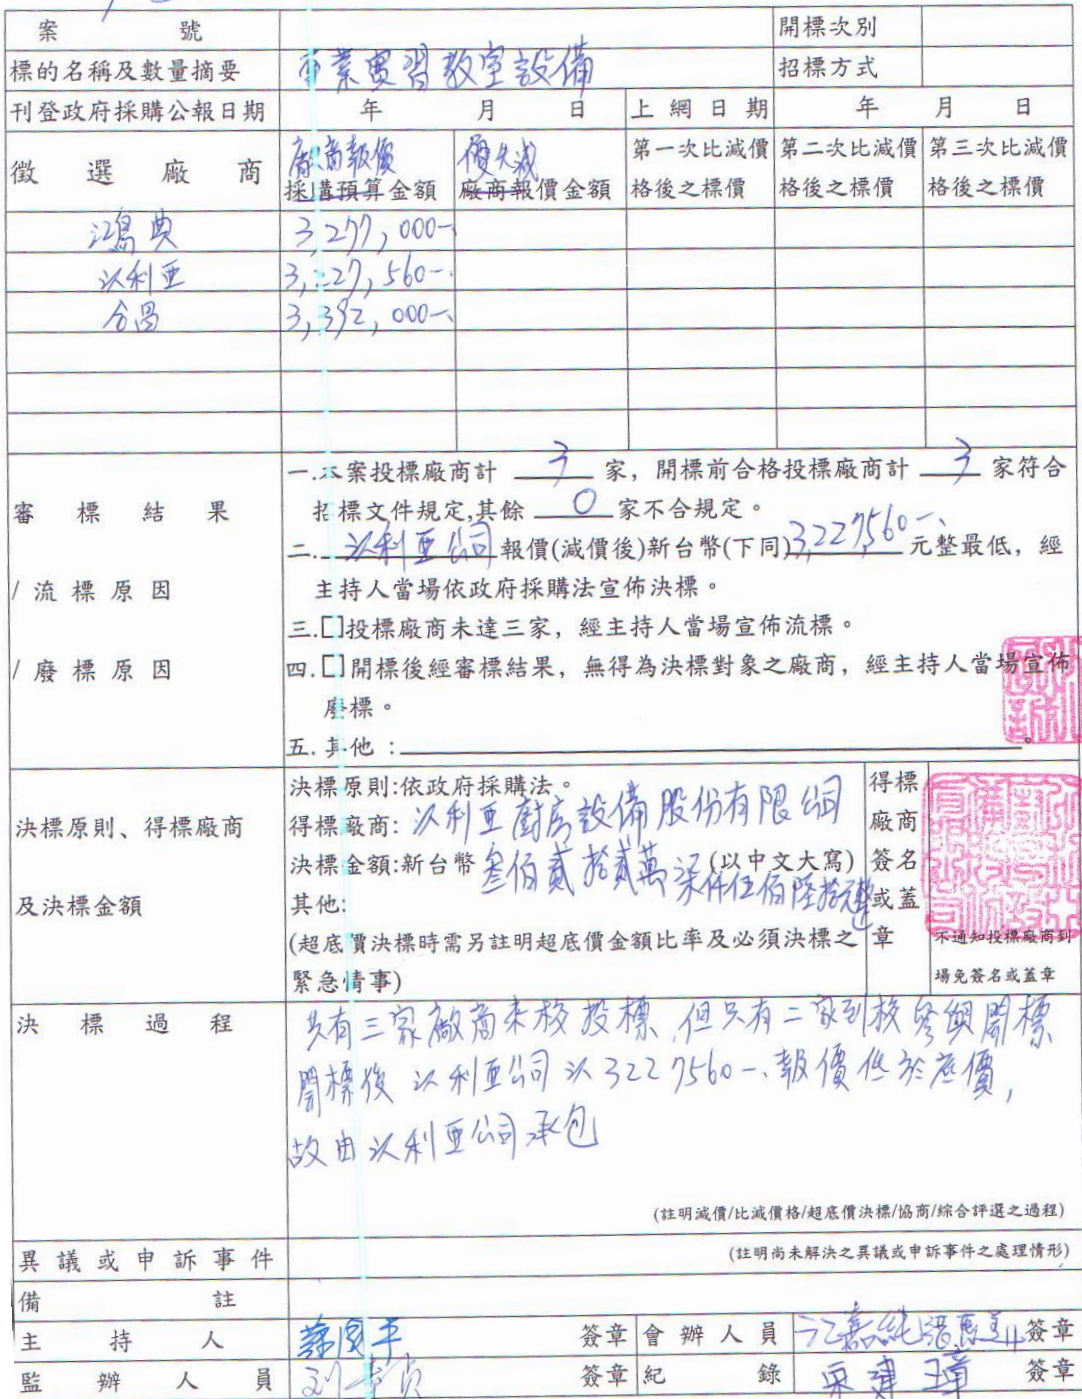 案 號 開標次別
標的名稱及數量摘要 專業實習教室設備 招標方式
刊登政府採購公報日期 年 月 日 上網日期 年 月 日
廠商報價 優先減
徵選廠商 採購預算金額 廠商報價金額 第一次比減價格後之標價 第二次比減價格後之標價 第三次比減價格後之標價
鴻典 3,277,000-
以利亞 3,227,560-
合昌 3,392,000-
審標結果
/流標原因
/廢標原因
一.本案投標廠商計 3 家,開標前合格投標廠商計 3 家符合
招標文件規定,其餘 0 家不合規定。
二. 以利亞公司 報價(減價後)新台幣(下同)3,227,560- 元整最低,經
主持人當場依政府採購法宣佈決標。
三.□投標廠商未達三家,經主持人當場宣佈流標。
四.□開標後經審標結果,無得為決標對象之廠商,經主持人當場宣佈
廢標。
五.其他:。
決標原則、得標廠商
及決標金額
決標原則:依政府採購法。
得標廠商:以利亞廚房設備股份有限公司
決標金額:新台幣叁佰貳拾貳萬柒仟伍佰陸拾元整(以中文大寫)
其他:
(超底價決標時需另註明超底價金額比率及必須決標之
緊急情事)
得標
廠商
簽名
或蓋
章
不通知投標廠商到
場免簽名或蓋章
決標過程
共有三家廠商來校投標,但只有二家到校參與開標
開標後以利亞公司以3227560-報價低於底價,
故由以利亞公司承包
(註明減價/比減價格/超底價決標/協商/綜合評選之過程)
異議或申訴事件 (註明尚未解決之異議或申訴事件之處理情形)
備註
主持人 簽章 會辦人員 簽章
監辦人員 簽章 紀錄 簽章